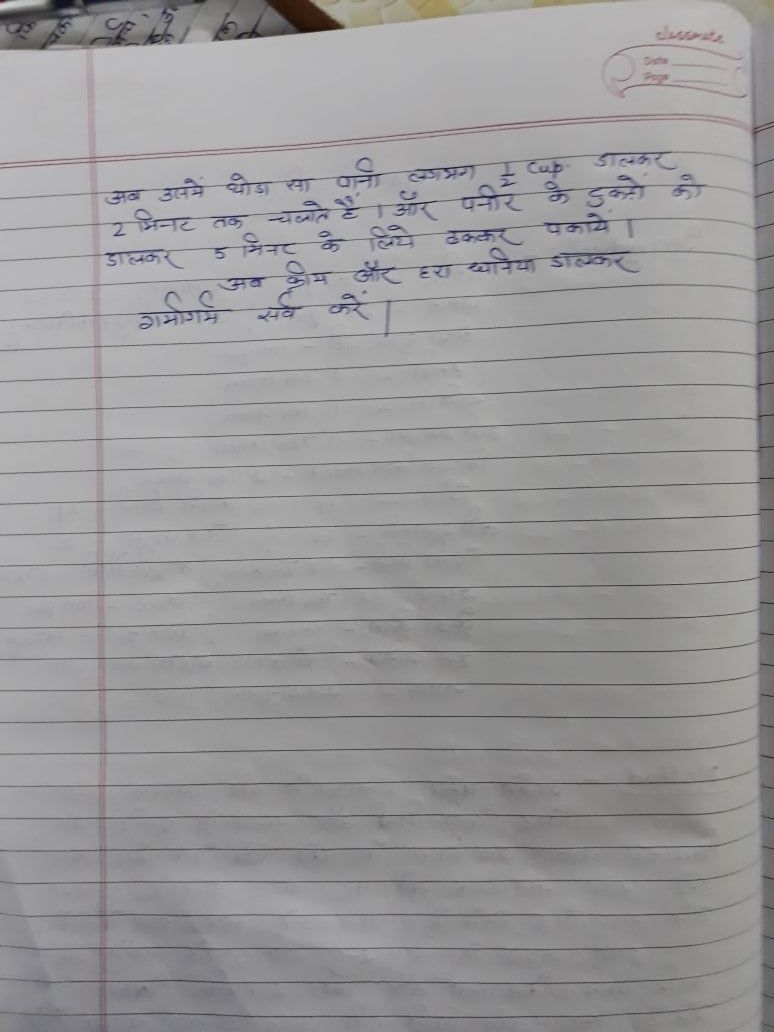 classmate
Date
Page
अब उसमें थोडा सा पानी लगभग 1/2 Cup. डालकर
2 मिनट तक चलाते हैं । और पनीर के टुकडों को
डालकर 5 मिनट के लिये ढककर पकायें ।
अब क्रीम और हरा धनिया डालकर
गर्मागर्म सर्व करें |